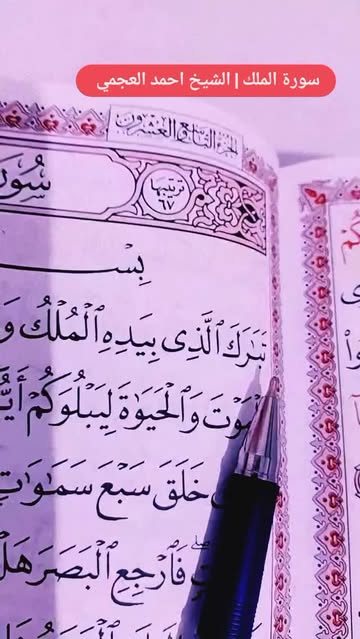 سورة الملك | الشيخ احمد العجمي
الجزء التاسع والعشرون
سُورَ
ترتيبها
٦٧
بِسْـ
تَبَٰرَكَ ٱلَّذِى بِيَدِهِ ٱلْمُلْكُ وَ
ٱلْمَوْتَ وَٱلْحَيَوٰةَ لِيَبْلُوَكُمْ أَيُّ
خَلَقَ سَبْعَ سَمَٰوَٰتٍ
فَٱرْجِعِ ٱلْبَصَرَ هَلْ